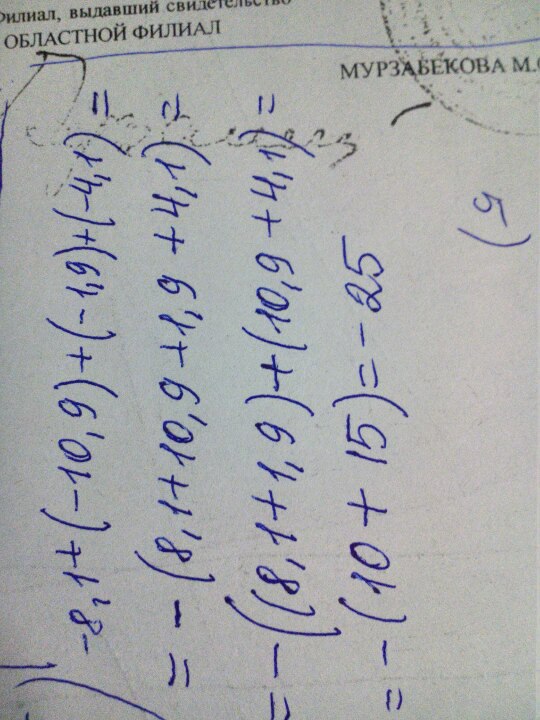 Филиал, выдавший свидетельство
ОБЛАСТНОЙ ФИЛИАЛ
МУРЗАБЕКОВА М.
-8,1+(-10,9)+(-1,9)+(-4,1)=
=-(8,1+10,9+1,9+4,1)=
=-((8,1+1,9)+(10,9+4,1)=
=-(10+15)=-25